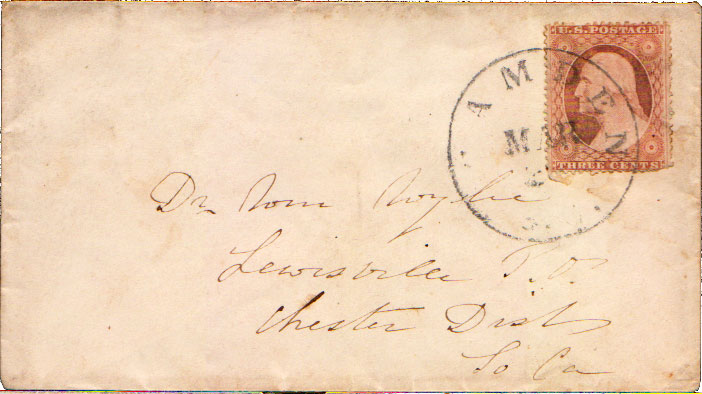 U.S. POSTAGE
THREE CENTS
CAMDEN
MAR
S.C.
Dr Wm Wylie
Lewisville P.O.
Chester Dist
So Ca